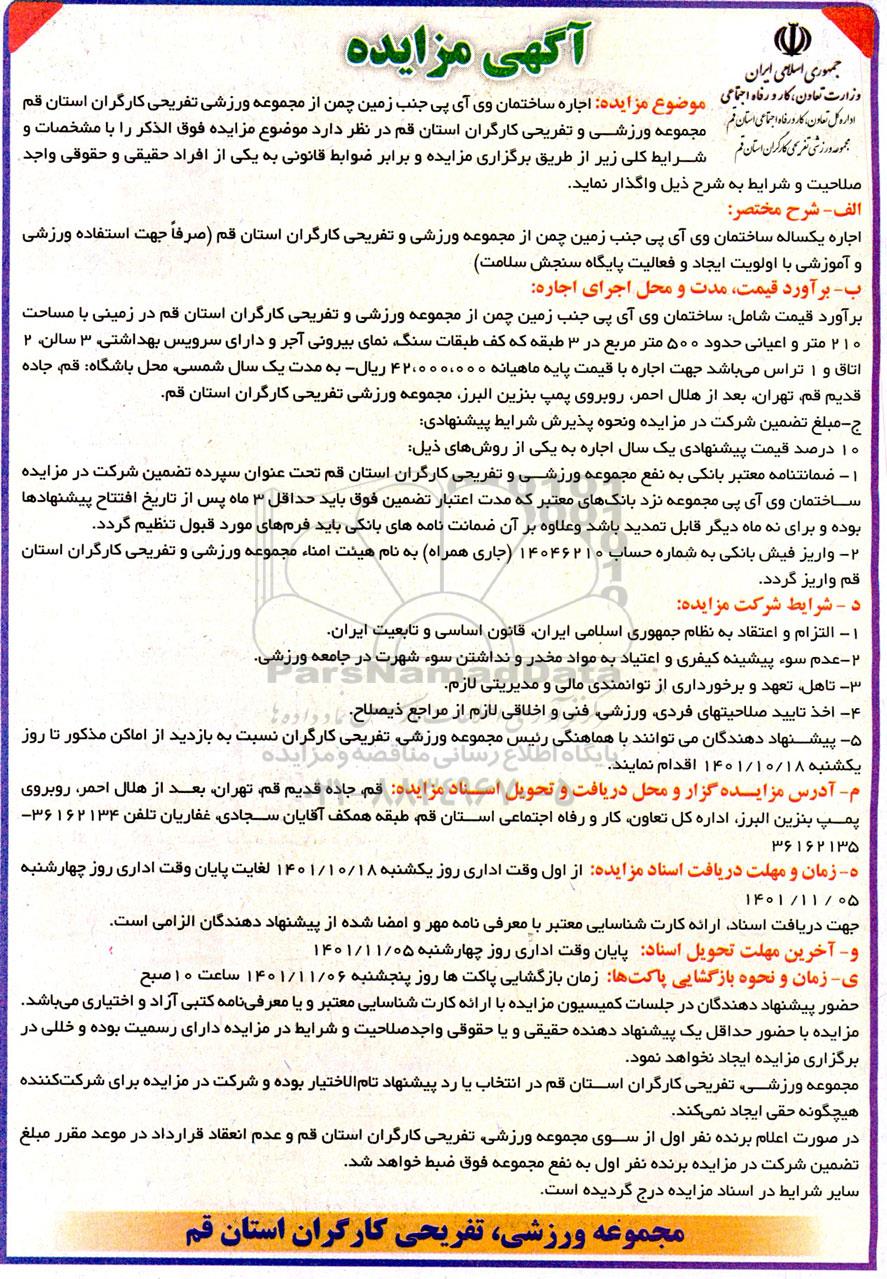 آگهی مزایده
جمهوری اسلامی ایران
وزارت تعاون، کار و رفاه اجتماعی
اداره کل تعاون، کار و رفاه اجتماعی استان قم
مجموعه ورزشی تفریحی کارگران استان قم
موضوع مزایده: اجاره ساختمان وی آی پی جنب زمین چمن از مجموعه ورزشی تفریحی کارگران استان قم
مجموعه ورزشی و تفریحی کارگران استان قم در نظر دارد موضوع مزایده فوق الذکر را با مشخصات و
شرایط کلی زیر از طریق برگزاری مزایده و برابر ضوابط قانونی به یکی از افراد حقیقی و حقوقی واجد
صلاحیت و شرایط به شرح ذیل واگذار نماید.
الف- شرح مختصر:
اجاره یکساله ساختمان وی آی پی جنب زمین چمن از مجموعه ورزشی و تفریحی کارگران استان قم (صرفاً جهت استفاده ورزشی
و آموزشی با اولویت ایجاد و فعالیت پایگاه سنجش سلامت)
ب- برآورد قیمت، مدت و محل اجرای اجاره:
برآورد قیمت شامل: ساختمان وی آی پی جنب زمین چمن از مجموعه ورزشی و تفریحی کارگران استان قم در زمینی با مساحت
۲۱۰ متر و اعیانی حدود ۵۰۰ متر مربع در ۳ طبقه که کف طبقات سنگ، نمای بیرونی آجر و دارای سرویس بهداشتی، ۳ سالن، ۲
اتاق و ۱ تراس می‌باشد جهت اجاره با قیمت پایه ماهیانه ۴۲،۰۰۰،۰۰۰ ریال- به مدت یک سال شمسی، محل باشگاه: قم، جاده
قدیم قم، تهران، بعد از هلال احمر، روبروی پمپ بنزین البرز، مجموعه ورزشی تفریحی کارگران استان قم.
ج-مبلغ تضمین شرکت در مزایده ونحوه پذیرش شرایط پیشنهادی:
۱۰ درصد قیمت پیشنهادی یک سال اجاره به یکی از روش‌های ذیل:
۱- ضمانتنامه معتبر بانکی به نفع مجموعه ورزشی و تفریحی کارگران استان قم تحت عنوان سپرده تضمین شرکت در مزایده
ساختمان وی آی پی مجموعه نزد بانک‌های معتبر که مدت اعتبار تضمین فوق باید حداقل ۳ ماه پس از تاریخ افتتاح پیشنهادها
بوده و برای نه ماه دیگر قابل تمدید باشد وعلاوه بر آن ضمانت نامه های بانکی باید فرم‌های مورد قبول تنظیم گردد.
۲- واریز فیش بانکی به شماره حساب ۱۴۰۴۶۲۱۰ (جاری همراه) به نام هیئت امناء مجموعه ورزشی و تفریحی کارگران استان
قم واریز گردد.
د - شرایط شرکت مزایده:
۱- التزام و اعتقاد به نظام جمهوری اسلامی ایران، قانون اساسی و تابعیت ایران.
۲-عدم سوء پیشینه کیفری و اعتیاد به مواد مخدر و نداشتن سوء شهرت در جامعه ورزشی.
ParsNamadData
۳- تاهل، تعهد و برخورداری از توانمندی مالی و مدیریتی لازم.
۴- اخذ تایید صلاحیتهای فردی، ورزشی، فنی و اخلاقی لازم از مراجع ذیصلاح.
۵- پیشنهاد دهندگان می توانند با هماهنگی رئیس مجموعه ورزشی، تفریحی کارگران نسبت به بازدید از اماکن مذکور تا روز
پایگاه اطلاع رسانی مناقصه و مزایده
یکشنبه ۱۴۰۱/۱۰/۱۸ اقدام نمایند.
م- آدرس مزایده گزار و محل دریافت و تحویل اسناد مزایده: قم، جاده قدیم قم، تهران، بعد از هلال احمر، روبروی
پمپ بنزین البرز، اداره کل تعاون، کار و رفاه اجتماعی استان قم، طبقه همکف آقایان سجادی، غفاریان تلفن ۳۶۱۶۲۱۳۴-
۳۶۱۶۲۱۳۵
ه- زمان و مهلت دریافت اسناد مزایده: از اول وقت اداری روز یکشنبه ۱۴۰۱/۱۰/۱۸ لغایت پایان وقت اداری روز چهارشنبه
۱۴۰۱/۱۱/۰۵
جهت دریافت اسناد، ارائه کارت شناسایی معتبر با معرفی نامه مهر و امضا شده از پیشنهاد دهندگان الزامی است.
و- آخرین مهلت تحویل اسناد: پایان وقت اداری روز چهارشنبه ۱۴۰۱/۱۱/۰۵
ی- زمان و نحوه بازگشایی پاکت‌ها: زمان بازگشایی پاکت ها روز پنجشنبه ۱۴۰۱/۱۱/۰۶ ساعت ۱۰صبح
حضور پیشنهاد دهندگان در جلسات کمیسیون مزایده با ارائه کارت شناسایی معتبر و یا معرفی‌نامه کتبی آزاد و اختیاری می‌باشد.
مزایده با حضور حداقل یک پیشنهاد دهنده حقیقی و یا حقوقی واجدصلاحیت و شرایط در مزایده دارای رسمیت بوده و خللی در
برگزاری مزایده ایجاد نخواهد نمود.
مجموعه ورزشی، تفریحی کارگران استان قم در انتخاب یا رد پیشنهاد تام‌الاختیار بوده و شرکت در مزایده برای شرکت‌کننده
هیچگونه حقی ایجاد نمی‌کند.
در صورت اعلام برنده نفر اول از سوی مجموعه ورزشی، تفریحی کارگران استان قم و عدم انعقاد قرارداد در موعد مقرر مبلغ
تضمین شرکت در مزایده برنده نفر اول به نفع مجموعه فوق ضبط خواهد شد.
سایر شرایط در اسناد مزایده درج گردیده است.
مجموعه ورزشی، تفریحی کارگران استان قم